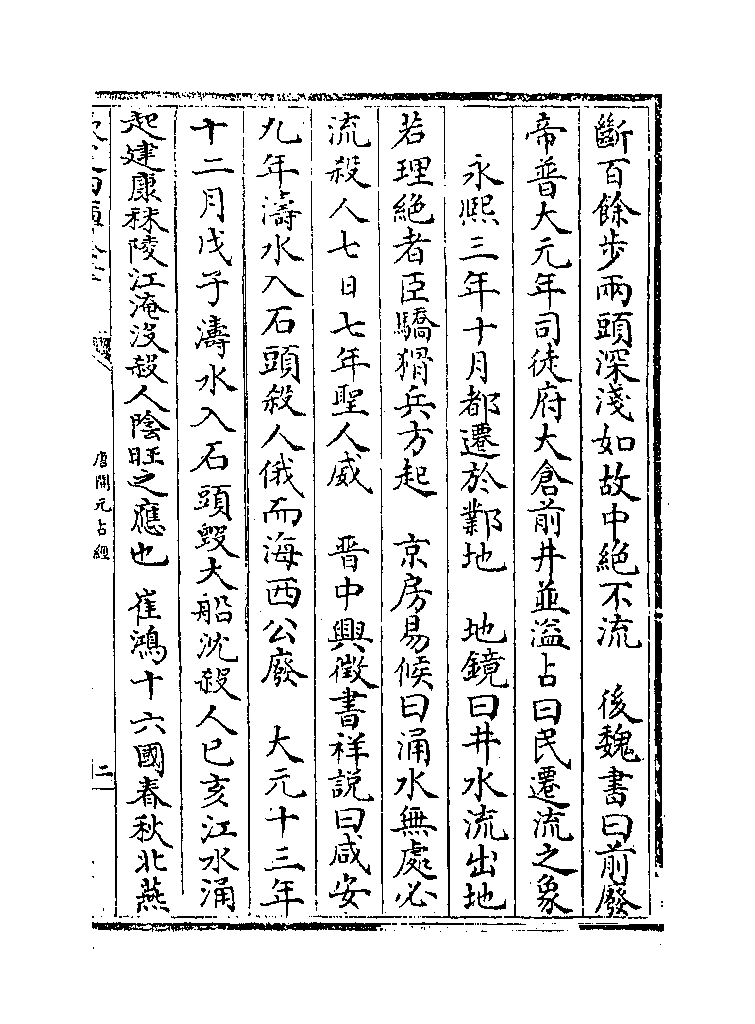 斷百餘步兩頭深淺如故中絕不流　後魏書曰前廢
帝普大元年司徒府大倉前井並溢占曰民遷流之象
永熈三年十月都遷於鄴地　地鏡曰井水流出地
若理絕者臣驕猾兵方起　京房易候曰涌水無處必
流殺人七日七年聖人威　晉中興徵書祥說曰咸安
九年濤水入石頭殺人俄而海西公廢　大元十三年
十二月戊子濤水入石頭毀大船沈殺人已亥江水涌
起建康秣陵江淹没殺人陰旺之應也　崔鴻十六國春秋北燕
唐開元占經
二